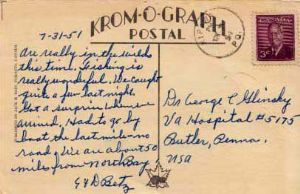 KROM-O-GRAPH
POSTAL
7-31-51
Are really in the wilds
this time. Fishing is
really wonderful. We caught
quite a few last night.
Got a surprise when we
arrived. Had to go by
boat the last mile - no
road. We are about 50
miles from North Bay
G & D Betz
Dr George L Glinsky
VA Hospital #5175
Butler, Penna.
USA